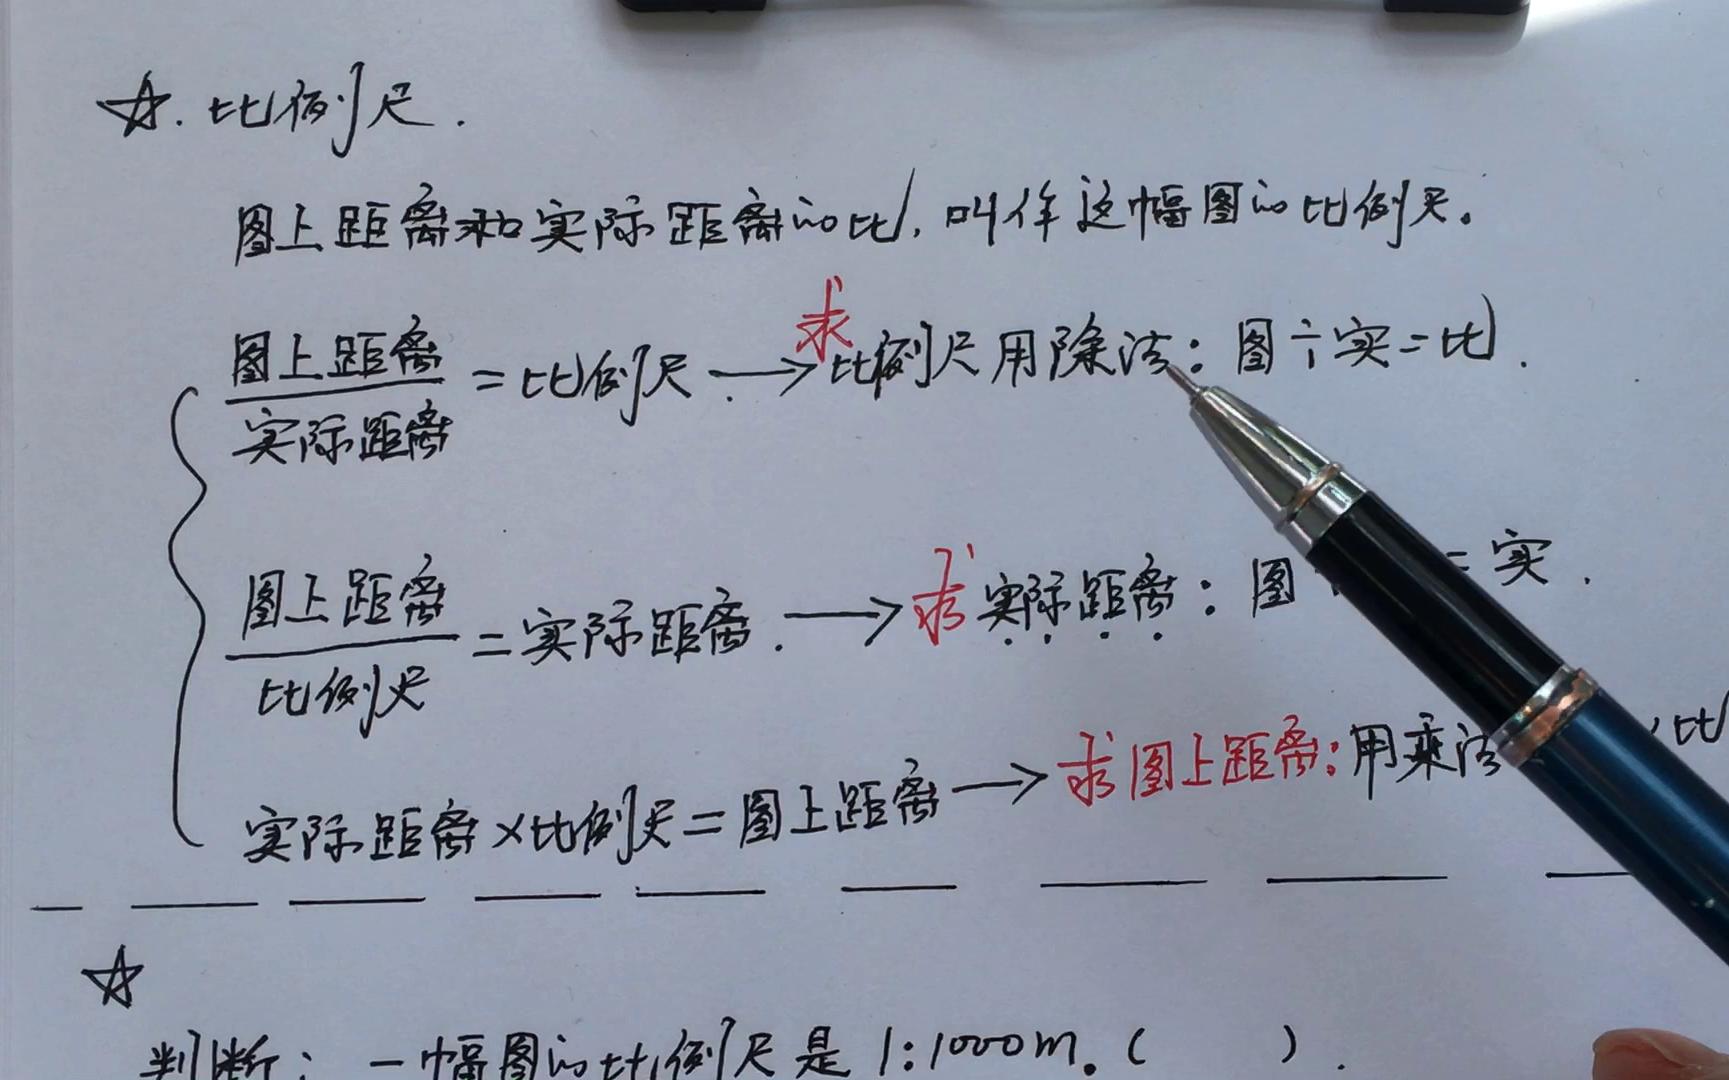 ☆. 比例尺.
图上距离和实际距离的比, 叫作这幅图的比例尺。
图上距离/实际距离 = 比例尺. → 求比例尺用除法: 图÷实=比.
图上距离/比例尺 = 实际距离. → 求实际距离: 图 = 实.
实际距离×比例尺=图上距离 → 求图上距离: 用乘法 比
☆
判断: 一幅图的比例尺是1:1000m. ( ).